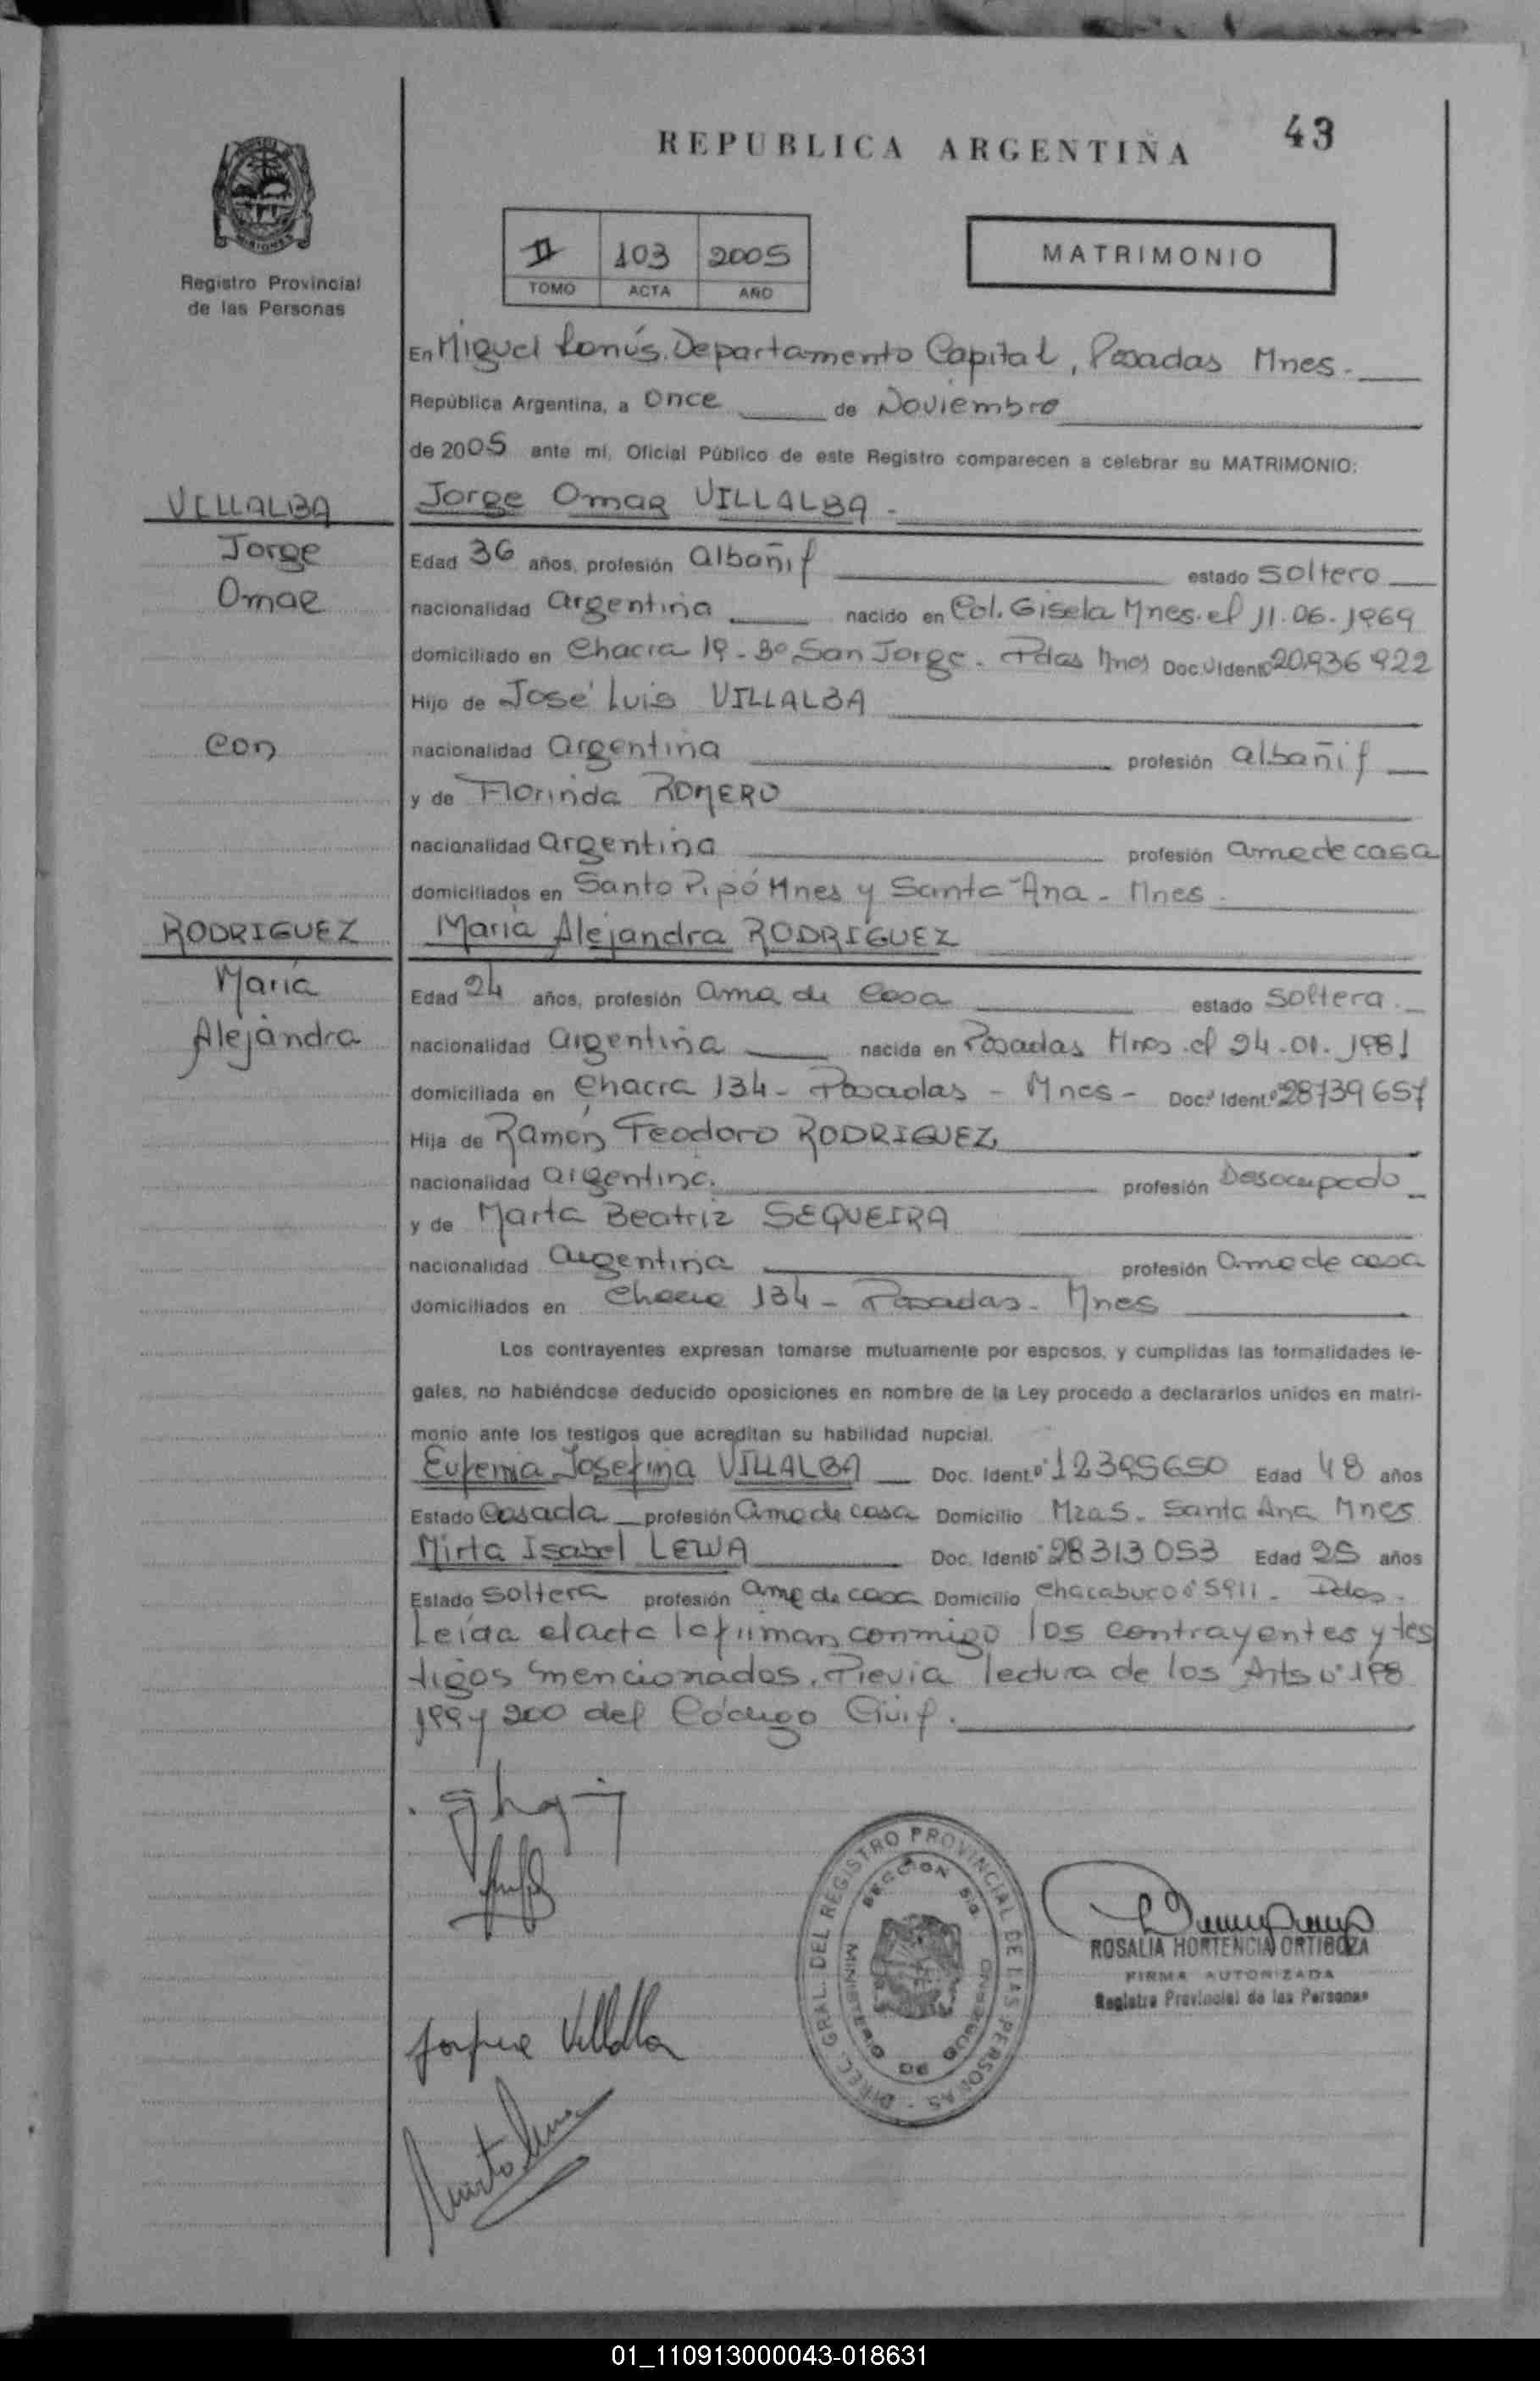 REPUBLICA ARGENTINA
43
MISIONES
Registro Provincial
de las Personas
II 103 2005
TOMO ACTA AÑO
MATRIMONIO
En Miguel Lanús, Departamento Capital, Posadas Mnes.
República Argentina, a Once de Noviembre
de 2005 ante mí, Oficial Público de este Registro comparecen a celebrar su MATRIMONIO:
VILLALBA
Jorge
Omar
con
RODRIGUEZ
María
Alejandra
Jorge Omar VILLALBA.
Edad 36 años, profesión albañil estado soltero
nacionalidad argentina nacido en Col. Gisela Mnes. el 11.06.1969
domiciliado en Chacra 19 - Bº San Jorge. Pdas Mnes Doc. Ident. 20.936 922
Hijo de José Luis VILLALBA
nacionalidad argentina profesión albañil
y de Florinda ROMERO
nacionalidad argentina profesión ama de casa
domiciliados en Santo Pipó Mnes y Santa Ana - Mnes.
María Alejandra RODRIGUEZ
Edad 24 años, profesión ama de casa estado soltera.
nacionalidad argentina nacida en Posadas Mnes. el 24.01.1981
domiciliada en Chacra 134 - Posadas - Mnes - Doc. Ident. 28739657
Hija de Ramón Teodoro RODRIGUEZ
nacionalidad argentina. profesión Desocupado
y de Marta Beatriz SEQUEIRA
nacionalidad argentina profesión ama de casa
domiciliados en Chacra 134 - Posadas - Mnes
Los contrayentes expresan tomarse mutuamente por esposos, y cumplidas las formalidades le-
gales, no habiéndose deducido oposiciones en nombre de la Ley procedo a declararlos unidos en matri-
monio ante los testigos que acreditan su habilidad nupcial.
Eufemia Josefina VILLALBA Doc. Ident. 12395650 Edad 48 años
Estado Casada profesión ama de casa Domicilio Mza 5. Santa Ana Mnes
Mirta Isabel LEWA Doc. Ident. 28313053 Edad 25 años
Estado soltera profesión ama de casa Domicilio Chacabuco nº 5911 - Pdas.
Leída el acta la firman conmigo los contrayentes y tes
tigos mencionados. Previa lectura de los Arts nº 198
199 y 200 del Código Civil.
DIREC. GRAL. DEL REGISTRO PROVINCIAL DE LAS PERSONAS
MINISTERIO DE GOBIERNO
ROSALIA HORTENCIA ORTIGOZA
FIRMA AUTORIZADA
Registro Provincial de las Personas
01_110913000043-018631